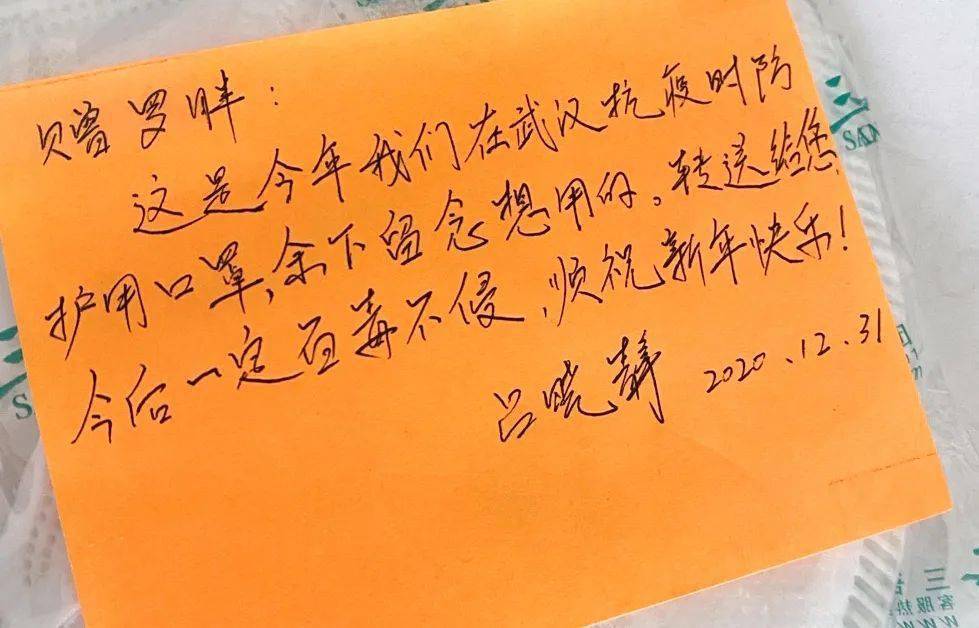 赠罗胖：
这是今年我们在武汉抗疫时防
护用口罩，余下留念想用的。转送给您，
今后一定百毒不侵，顺祝新年快乐！
吕晓静 2020.12.31
SAN
三
客服热
WWW